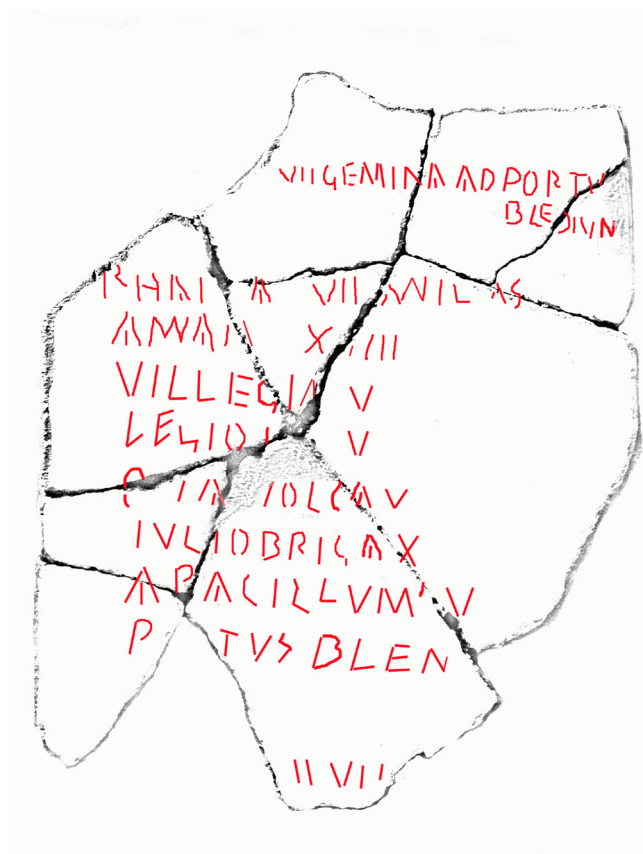 VII GEMINA AD PORTV
BLEDIVN
RHAI A VII MIL AS
AMAIA X IIII
VILLEGIA V
LEGIO I V
O IA IOLCA V
IVLIOBRIGA X
APACILLVM V
P TVS BLEN
II VII